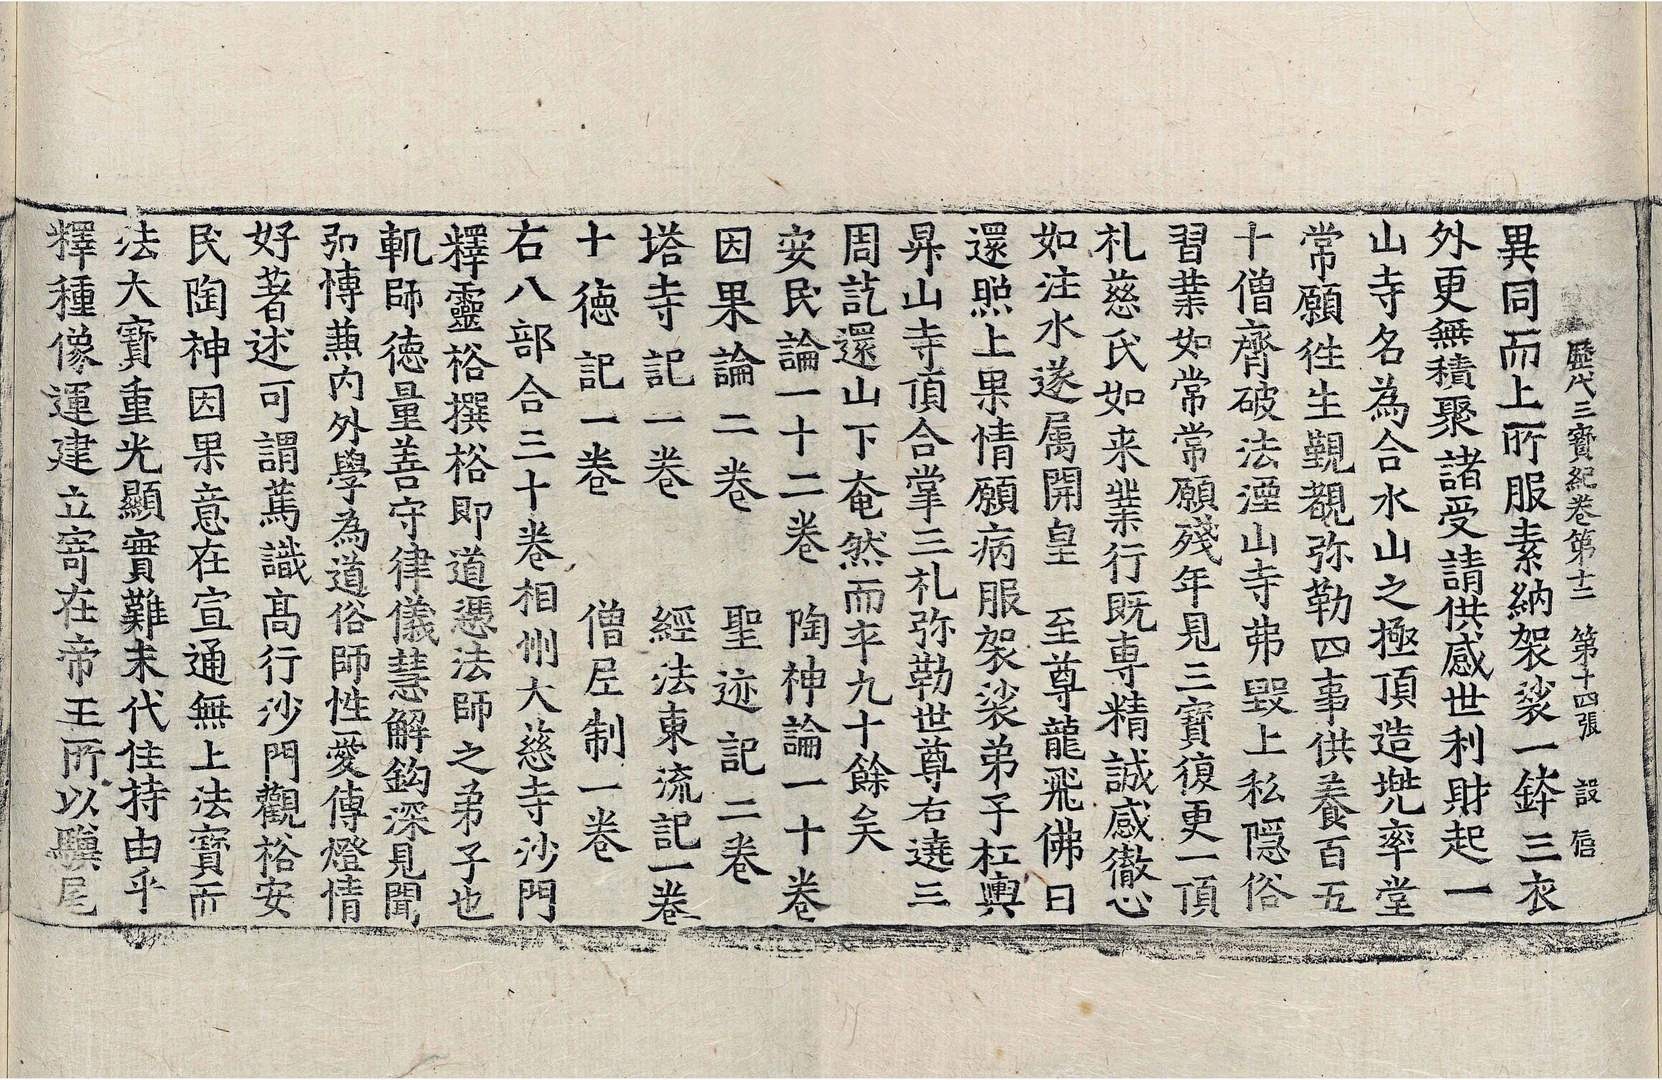 歷代三寶紀卷第十二 第十四張 設 㐰
異同而上所服素納袈裟一鉢三衣
外更無積聚諸受請供感世利財起一
山寺名為合水山之極頂造兠率堂
常願徃生覲覩弥勒四事供養百五
十僧齊破法湮山寺弗毀上私隱俗
習業如常常願殘年見三寶復更一頂
礼慈氏如来業行既専精誠感徹心
如注水遂属開皇 至尊龍飛佛日
還照上果情願病服袈裟弟子杠輿
昇山寺頂合掌三礼弥勒世尊右遶三
周訖還山下奄然而卒九十餘矣
安民論一十二卷 陶神論一十卷
因果論二卷 聖迹記二卷
塔寺記一卷 經法東流記一卷
十徳記一卷 僧尼制一卷
右八部合三十卷相州大慈寺沙門
釋靈裕撰裕即道憑法師之弟子也
軓師徳量善守律儀慧解鈎深見聞
弘愽兼内外學為道俗師性愛傳燈情
好著述可謂篤識髙行沙門觀裕安
民陶神因果意在宣通無上法寶而
法大寶重光顯實難末代住持由乎
釋種像運建立寄在帝王所以驥尾